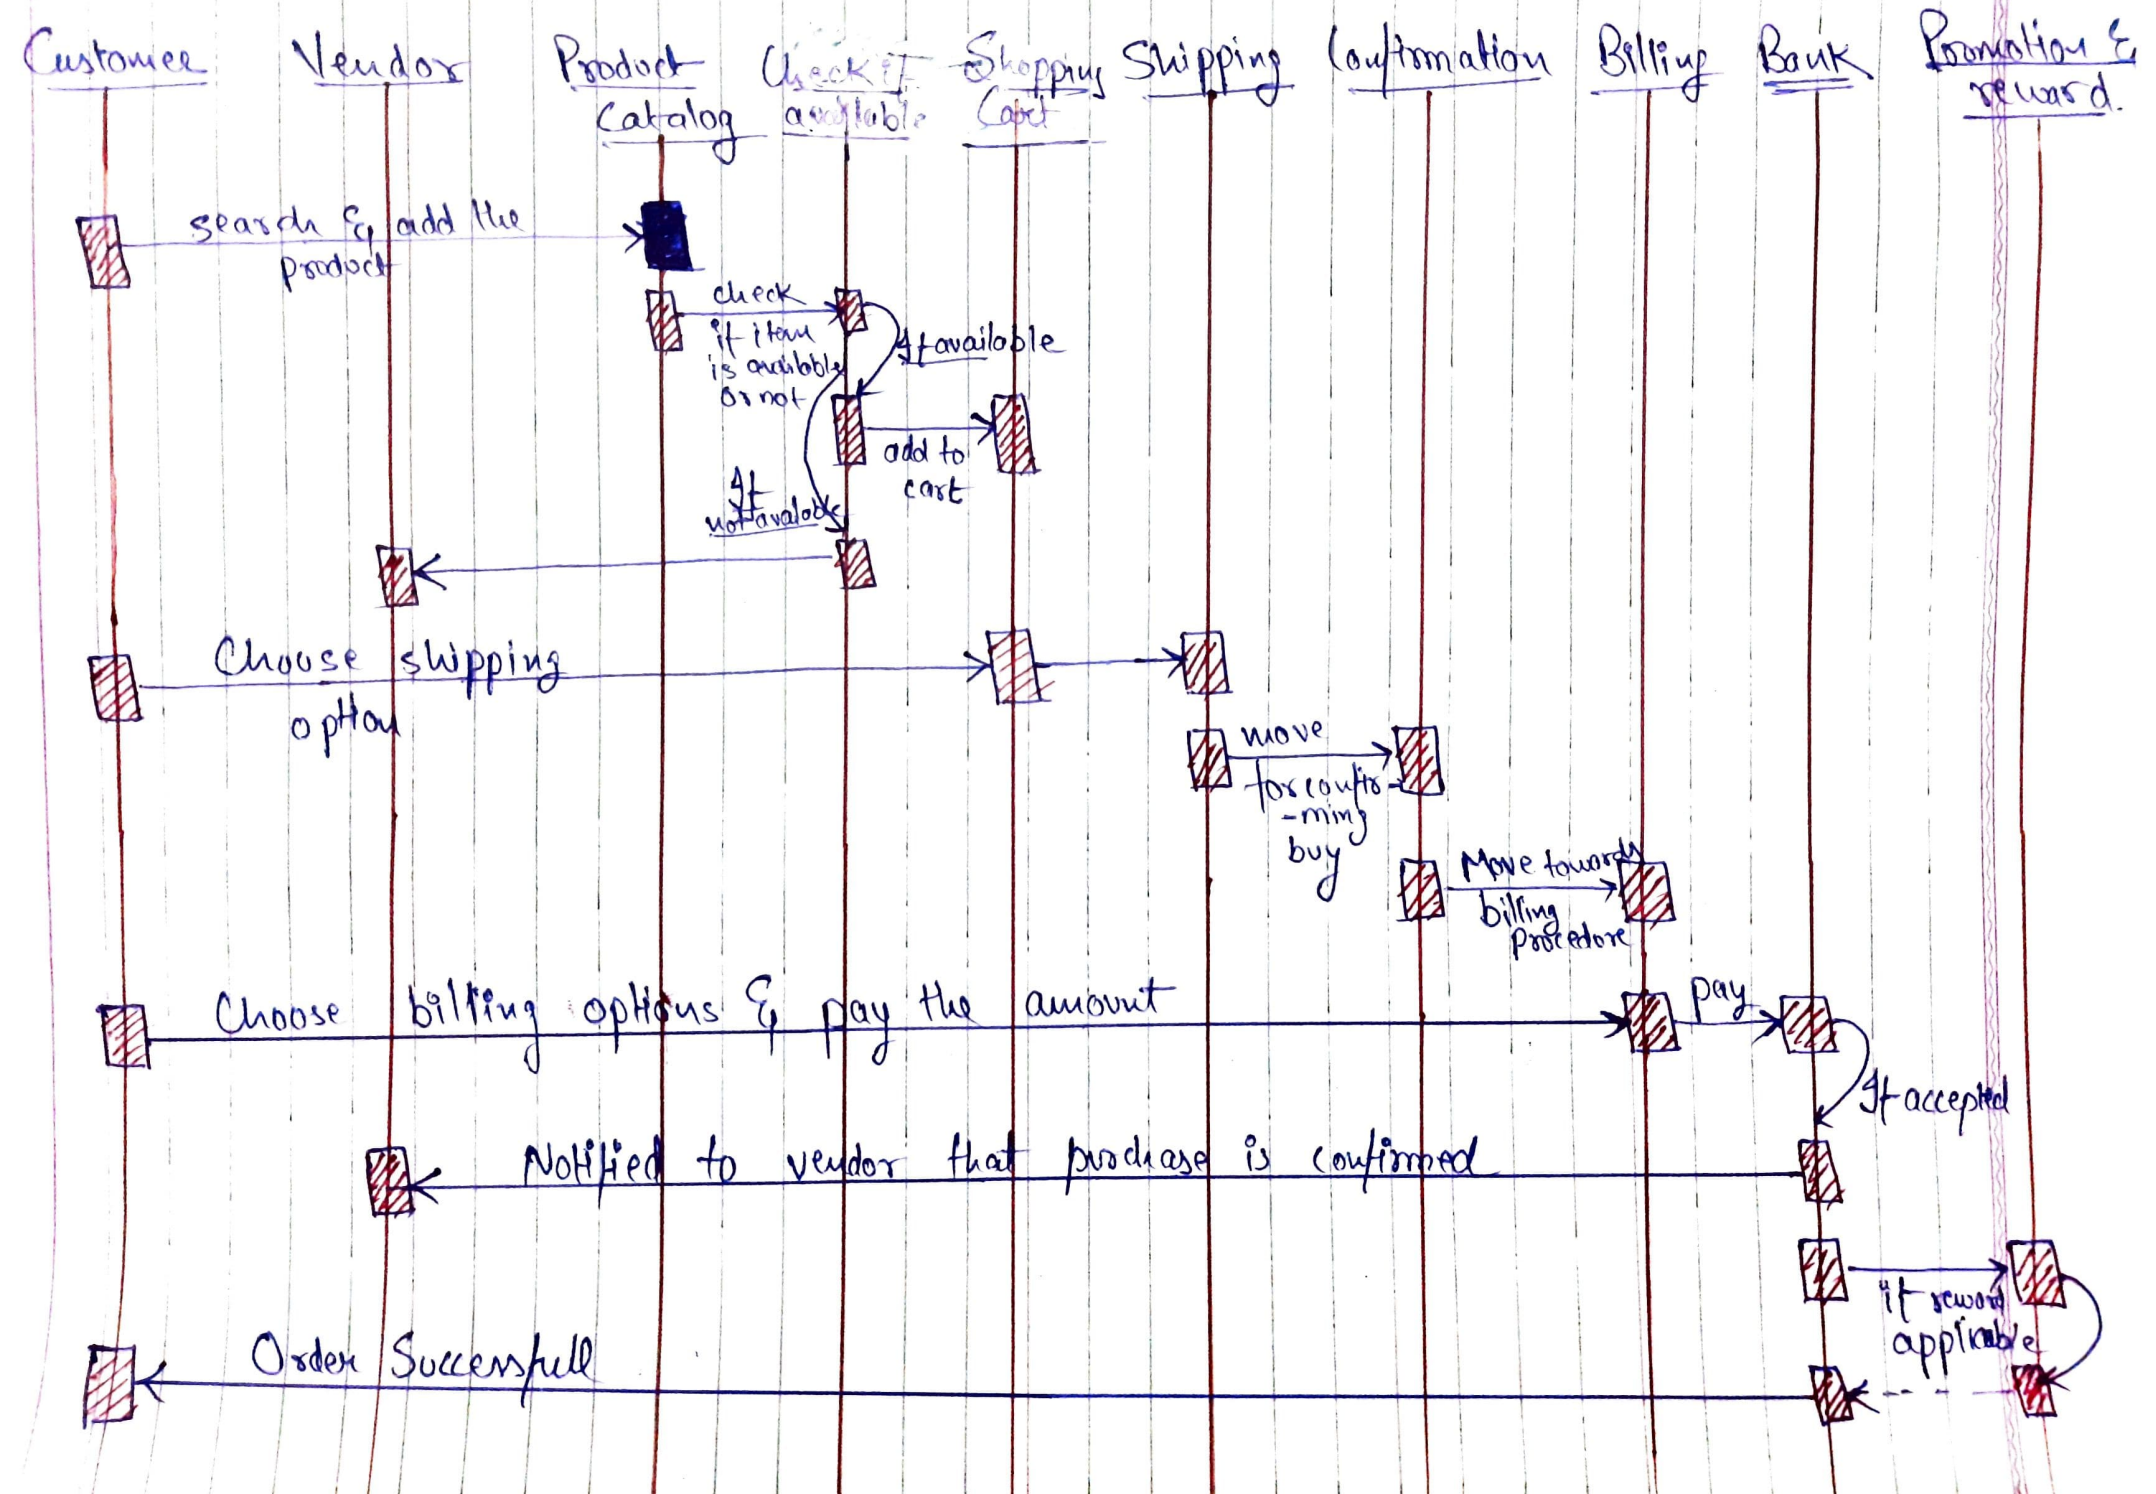 Customer
Vendor
Product
Catalog
Check if
available
Shopping
Cart
Shipping
Confirmation
Billing
Bank
Promotion &
reward.
search & add the
product
check
if item
is available
or not
If available
add to
cart
If
not available
Choose shipping
option
move
for confir-
-ming
buy
Move towards
billing
Procedore
Choose billing options & pay the amount
pay
If accepted
Notified to vendor that purchase is confirmed
if reward
applicable
Order Successfull